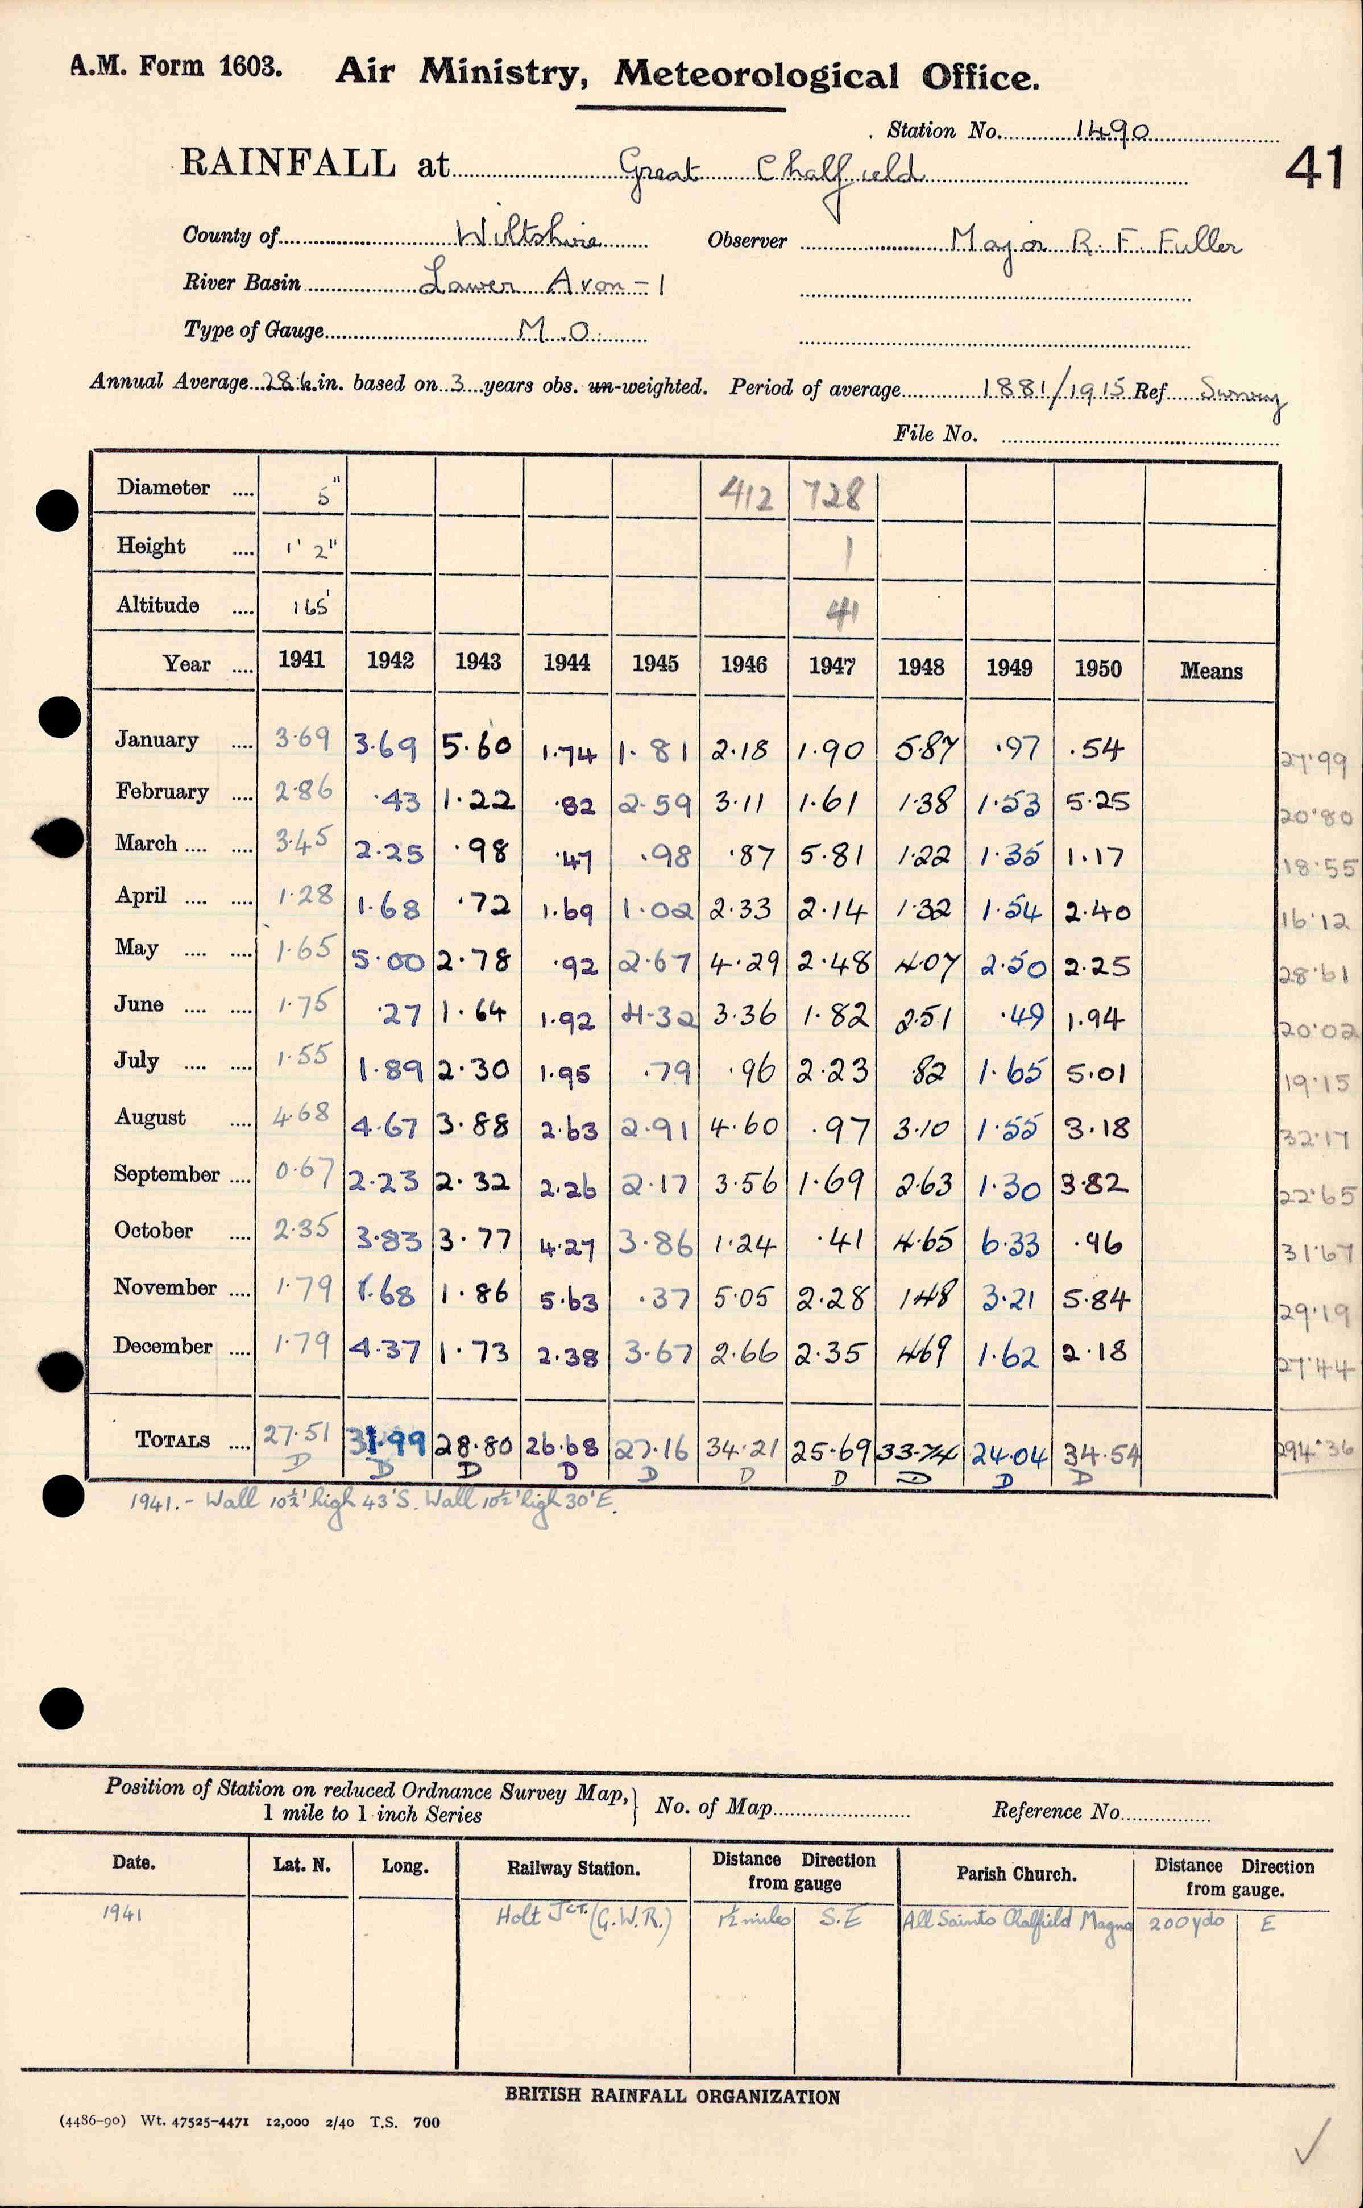 A.M. Form 1603. Air Ministry, Meteorological Office.
Station No. 1490
RAINFALL at Great Chalfield
41
County of Wiltshire Observer Major R. F. Fuller
River Basin Lower Avon - 1
Type of Gauge M.O.
Annual Average 28.6 in. based on 3 years obs. un-weighted. Period of average 1881/1915 Ref Survey
File No.
Diameter .... 5" 412 728
Height .... 1' 2" 1
Altitude .... 165' 41
Year .... 1941 1942 1943 1944 1945 1946 1947 1948 1949 1950 Means
January .... 3.69 3.69 5.60 1.74 1.81 2.18 1.90 5.87 .97 .54 27.99
February .... 2.86 .43 1.22 .82 2.59 3.11 1.61 1.38 1.53 5.25 20.80
March .... .... 3.45 2.25 .98 .47 .98 .87 5.81 1.22 1.35 1.17 18.55
April .... .... 1.28 1.68 .72 1.69 1.02 2.33 2.14 1.32 1.54 2.40 16.12
May .... .... 1.65 5.00 2.78 .92 2.67 4.29 2.48 4.07 2.50 2.25 28.61
June .... .... 1.75 .27 1.64 1.92 4.32 3.36 1.82 2.51 .49 1.94 20.02
July .... .... 1.55 1.89 2.30 1.95 .79 .96 2.23 .82 1.65 5.01 19.15
August .... 4.68 4.67 3.88 2.63 2.91 4.60 .97 3.10 1.55 3.18 32.17
September .... 0.67 2.23 2.32 2.26 2.17 3.56 1.69 2.63 1.30 3.82 22.65
October .... 2.35 3.83 3.77 4.27 3.86 1.24 .41 4.65 6.33 .96 31.67
November .... 1.79 1.68 1.86 5.63 .37 5.05 2.28 1.48 3.21 5.84 29.19
December .... 1.79 4.37 1.73 2.38 3.67 2.66 2.35 4.69 1.62 2.18 27.44
TOTALS .... 27.51 31.99 28.80 26.68 27.16 34.21 25.69 33.74 24.04 34.54 294.36
D D D D D D D D D D
1941.- Wall 10½' high 43'S. Wall 10½' high 30'E.
Position of Station on reduced Ordnance Survey Map, 1 mile to 1 inch Series } No. of Map Reference No.
Date. Lat. N. Long. Railway Station. Distance Direction from gauge Parish Church. Distance Direction from gauge.
1941 Holt Jct. (G.W.R.) 1½ miles S.E All Saints Chalfield Magna 200 yds E
BRITISH RAINFALL ORGANIZATION
(4486-90) Wt. 47525-4471 12,000 2/40 T.S. 700